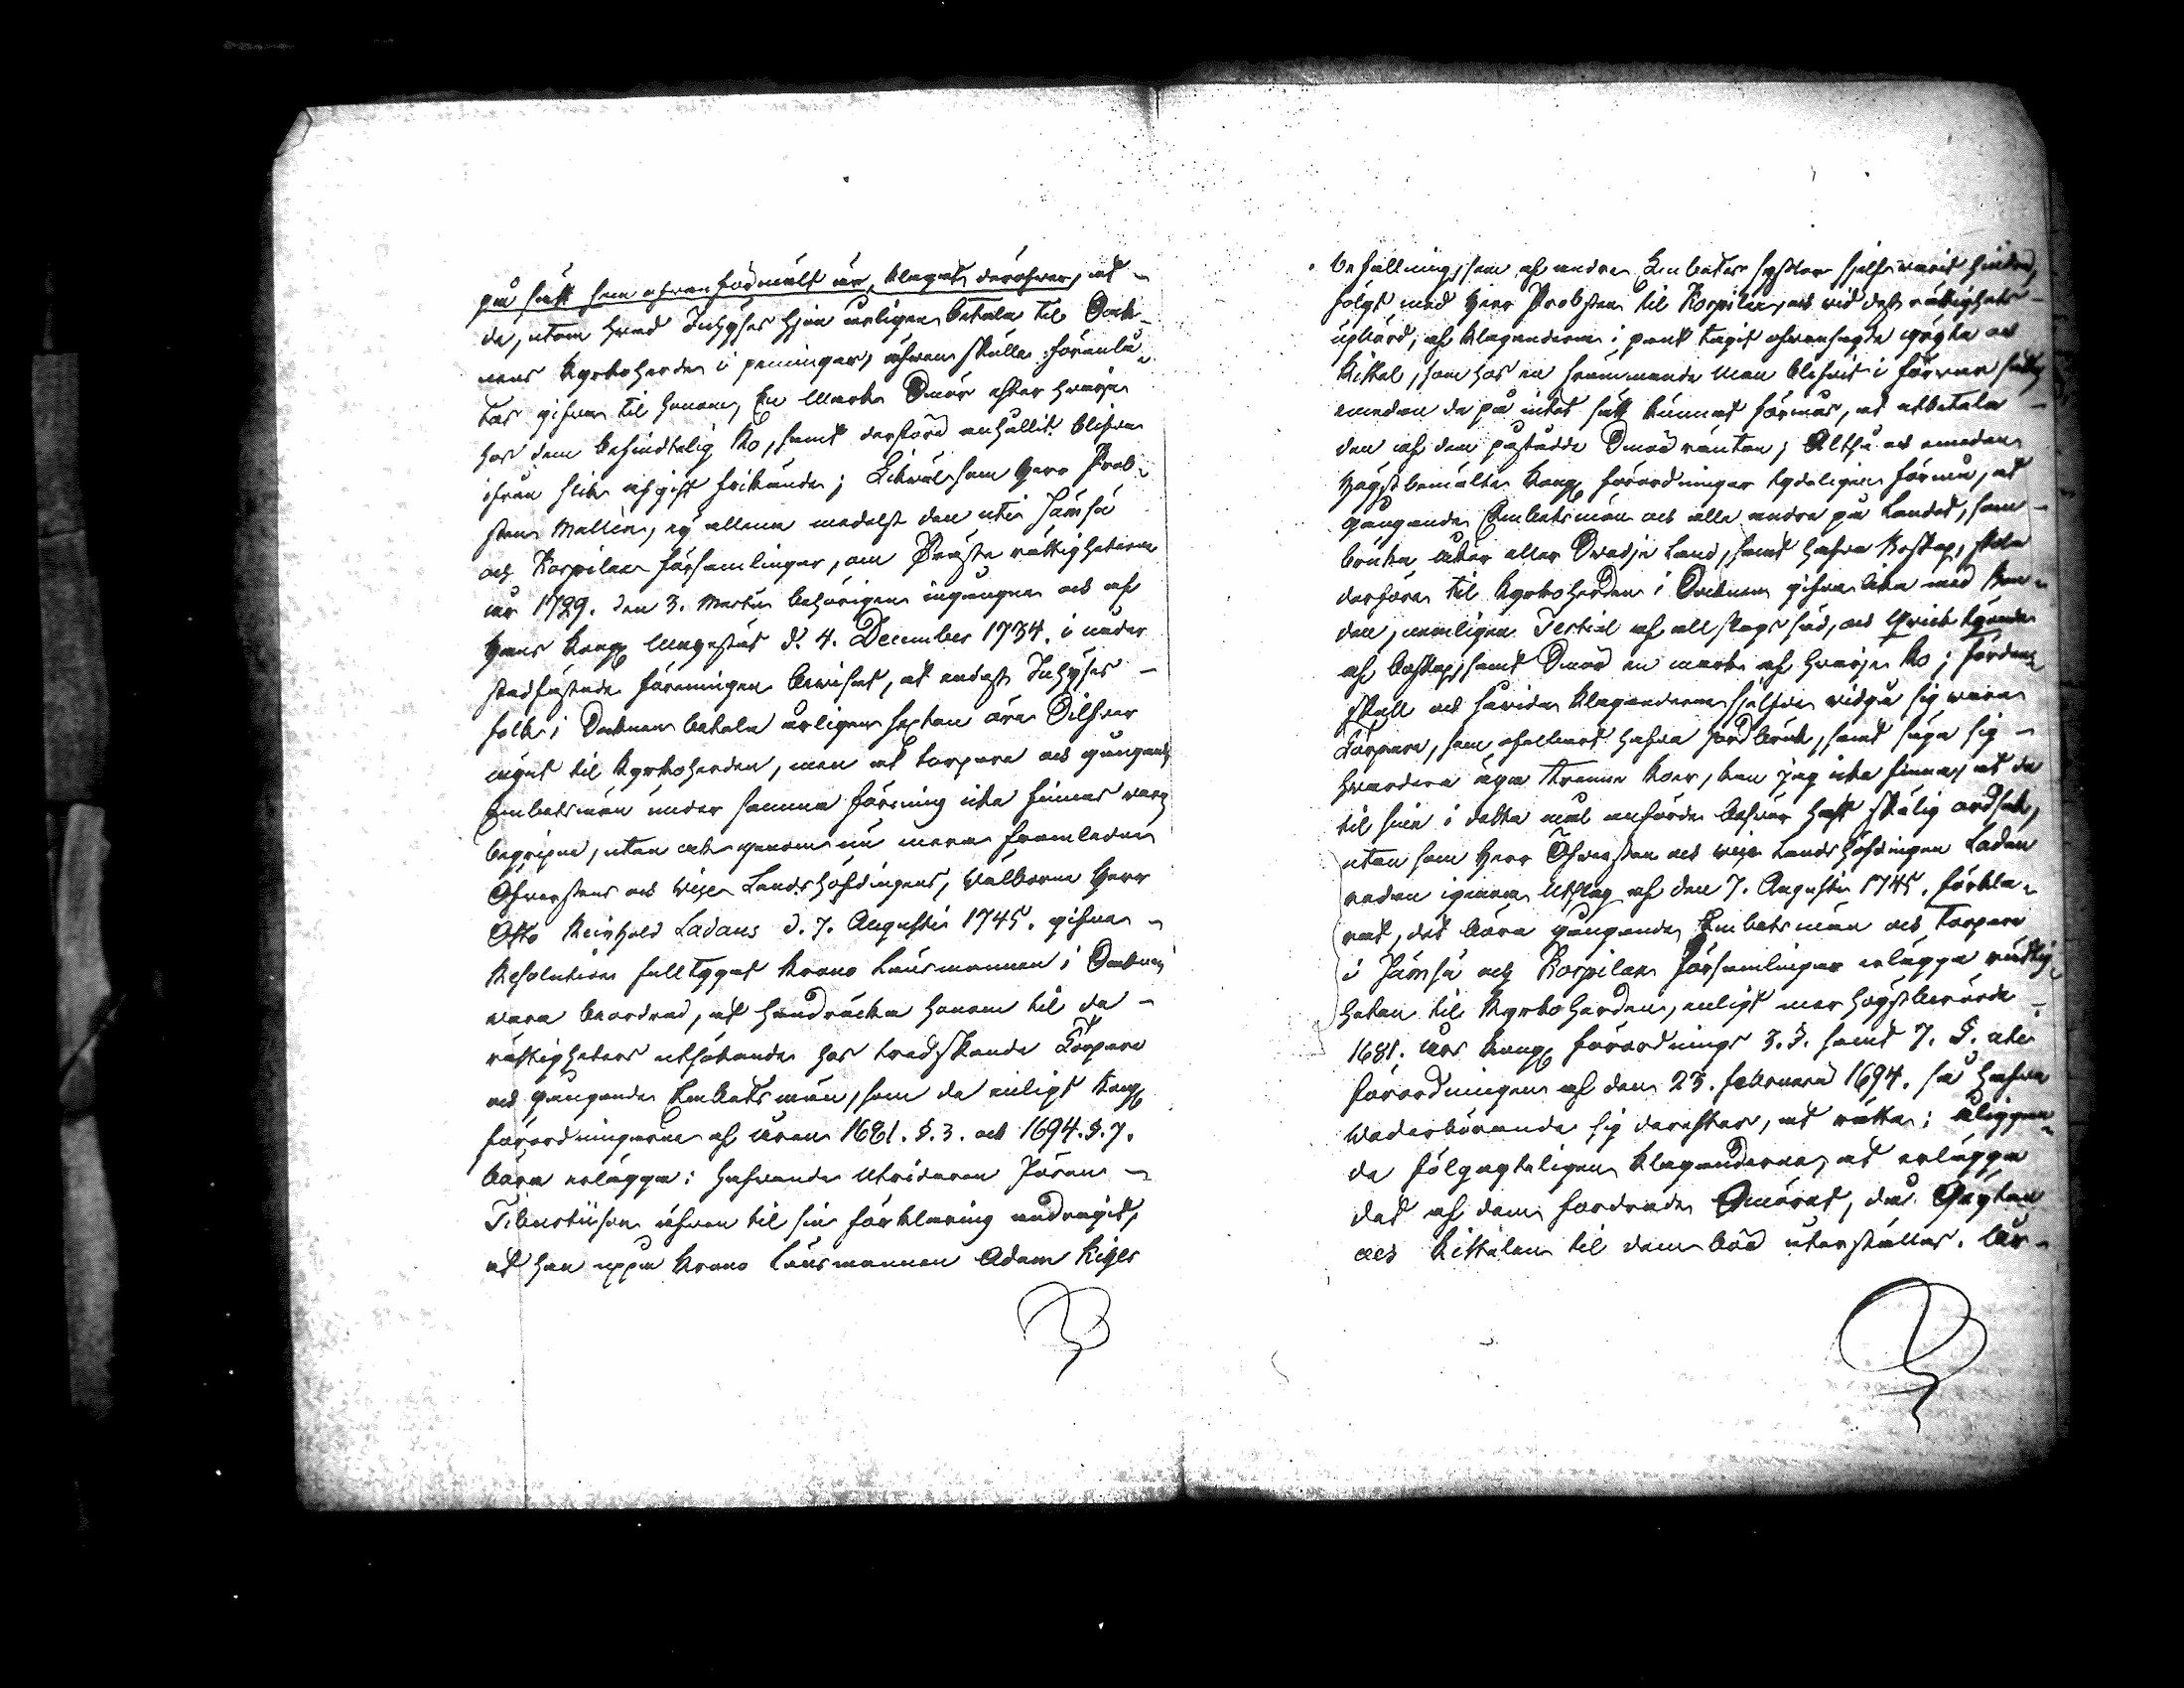 på sätt som ofwanförmält är, klagat deröfwer, at
de, utom hwad Inhyses Hjon årligen betala til Sock-
nens Kyrkoherde i penningar, äfwen skulle förenlå-
tas gifwa til honom, En Mark Smör efter hwarje
hos dem befindtelig Ko, samt derföre anhållit blifwa
ifrån slik afgift frikände; Likwäl som Herr Prob-
sten Mallen, ej allena medelst den uti Jämsä
och Korpilax församlingar, om Prästerättigheterne
år 1729. den 3. Martii behörigen ingångne och af
Hans Kongl Mayestät d. 4. December 1734. i nåder
stadfästade föreningen bewisat, at endast Inhyses
folk i Socknen betala årligen sexton öre Silfwer
mynt til Kyrkoherden, men at torpare och gångande
Embetsmän under samma förening icke finnas wara
begripne, utan ock genom nu mera framledne
Öfwerstens och Vice Landshöfdingens, Wälborne Herr
Otto Reinhold Ladaus d. 7. Augusti 1745. gifwne
Resolution fulltygat Krono Länsmannen i Socknen
wara beordrad, at handräcka honom til de
rättigheters utsökande hos tredskande Torpare
och gångande Embetsmän, som de enligt Kongl
förordningarne af åren 1681. §. 3. och 1694. §. 7.
böra erlägga: hafwande Utridaren Jöran
Tibenstiisen äfwen til sin förklaring andragit,
at han uppå Krono Länsmannen Adam Kiljs
befallning, som af andra Embetes sysslor sjelf warit hindrad,
följt med Herr Probsten til Korpilax, och wid dess rättighets
upbörd, af Klaganderne i pant tagit ofwansagde gryta och
Kittel, som hos en främmande Man blifwit i förwar satte
emedan de på intet sätt kunnat förmås, at utbetala
den af dem påstådde Smör räntan; Altså och emedan
Högstbemälte Kongl förordningar tydeligen förmå, at
gångande Embetsmän och alla andra på Landet, som
bruka Åker eller Swedje Land, samt hafwa Boskap, skola
derföre til Kyrkoherden i Socknen gifwa lika med Bon-
den, nemligen Tertial af all slags säd, och Qwick tijonde
af boskap, samt Smör en mark af hwarje Ko; fördenskull
skall och såwida Klaganderne sjelfwe widgå sig wara
Torpare, som ofelbart hafwa Jordbruk, samt säga sig
hwardera äga trenne Koer, kan jag icke finna, at de
til sine i detta mål anförde beswär haft skälig ordsak,
utan som Herr Öfwersten och Vice Landshöfdingen Ladau
redan igenom Utslag af den 7. Augusti 1745. förkla-
rat, det böra gångande Embetsmän och Torpare
i Jämsä och Korpilax församlingar erlägga rättig-
heten til Kyrkoherden, enligt mer högstberörde
1681. års Kongl förordnings 3. §. samt 7. §. uti
förordningen af den 23. Februarii 1694. så hafwa
wederbörande sig derefter, at rätta; åliggan-
de följagteligen Klaganderne, at erlägga
det af dem fordrade Smöret, då Grytan
och Kittelen til dem bör återställas. Här-